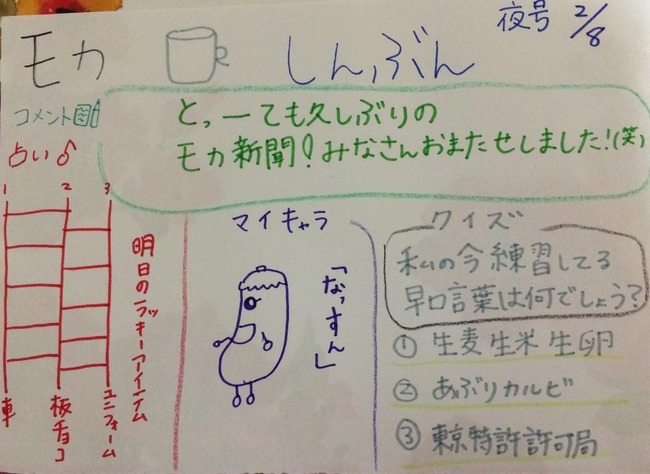 モカ しんぶん
夜号 2/8
コメント
とっーても久しぶりの
モカ新聞!みなさんおまたせしました!(笑)
占い
1 2 3
明日のラッキーアイテム
車
板チョコ
ユニフォーム
マイキャラ
「なっすん」
クイズ
私の今練習してる
早口言葉は何でしょう?
① 生麦生米生卵
② あぶりカルビ
③ 東京特許許可局